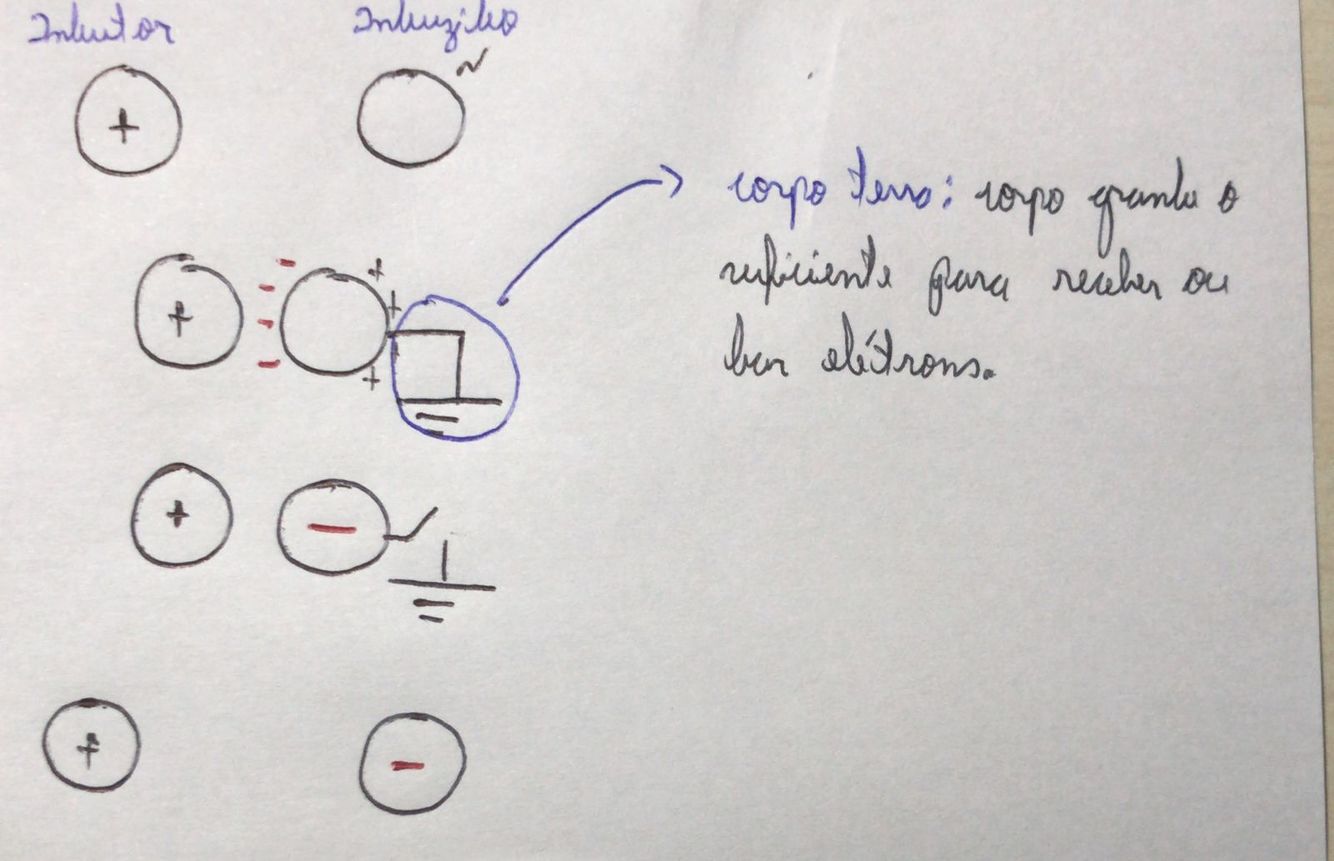 Indutor Induzido
+ N
corpo terra: corpo grande o
suficiente para receber ou
+
- +
- +
-
- +
dar elétrons.
+ -
+ -